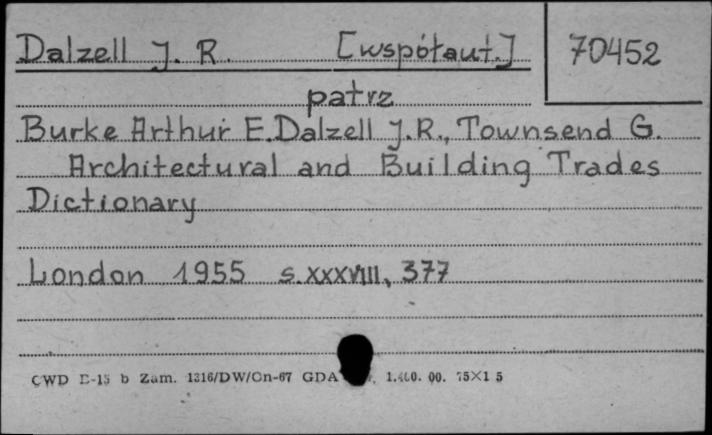 Dalzell J. R. [współaut.] 70452
patrz
Burke Arthur E. Dalzell J.R., Townsend G.
Architectural and Building Trades
Dictionary
London 1955 s. XXXVIII, 377
CWD E-15 b Zam. 1316/DW/Cn-67 GDA